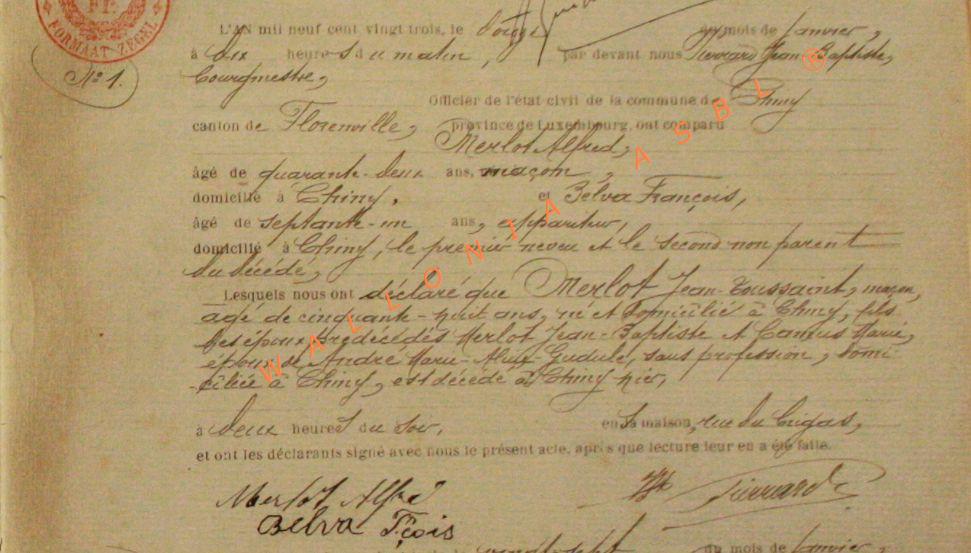 FORMAAT ZEGEL
L'AN mil neuf cent vingt trois, le douze du mois de Janvier,
N° 1.
à dix heures du matin, par devant nous Pierrard Jean-Baptiste,
Bourgmestre,
Officier de l'état civil de la commune de Chiny
canton de Florenville, province de Luxembourg, ont comparu
Merlot Alfred,
âgé de quarante-deux ans, maçon,
domicilié à Chiny, et Belva François,
âgé de septante-un ans, appariteur,
domicilié à Chiny, le premier neveu et le second non parent
du décédé,
Lesquels nous ont déclaré que Merlot Jean-Toussaint, maçon,
agé de cinquante-huit ans, né et domicilié à Chiny, fils
des époux prédécédés Merlot Jean-Baptiste et Camus Marie,
époux de André Marie-Gudule, sans profession, domi
-ciliée à Chiny, est décédé à Chiny hier,
à deux heures du soir, en sa maison, rue du
et ont les déclarants signé avec nous le présent acte, après que lecture leur en a été faite.
Merlot Alfred
Pierrard
Belva Fçois
WALLONIA ASBL ®
du mois de Janvier,